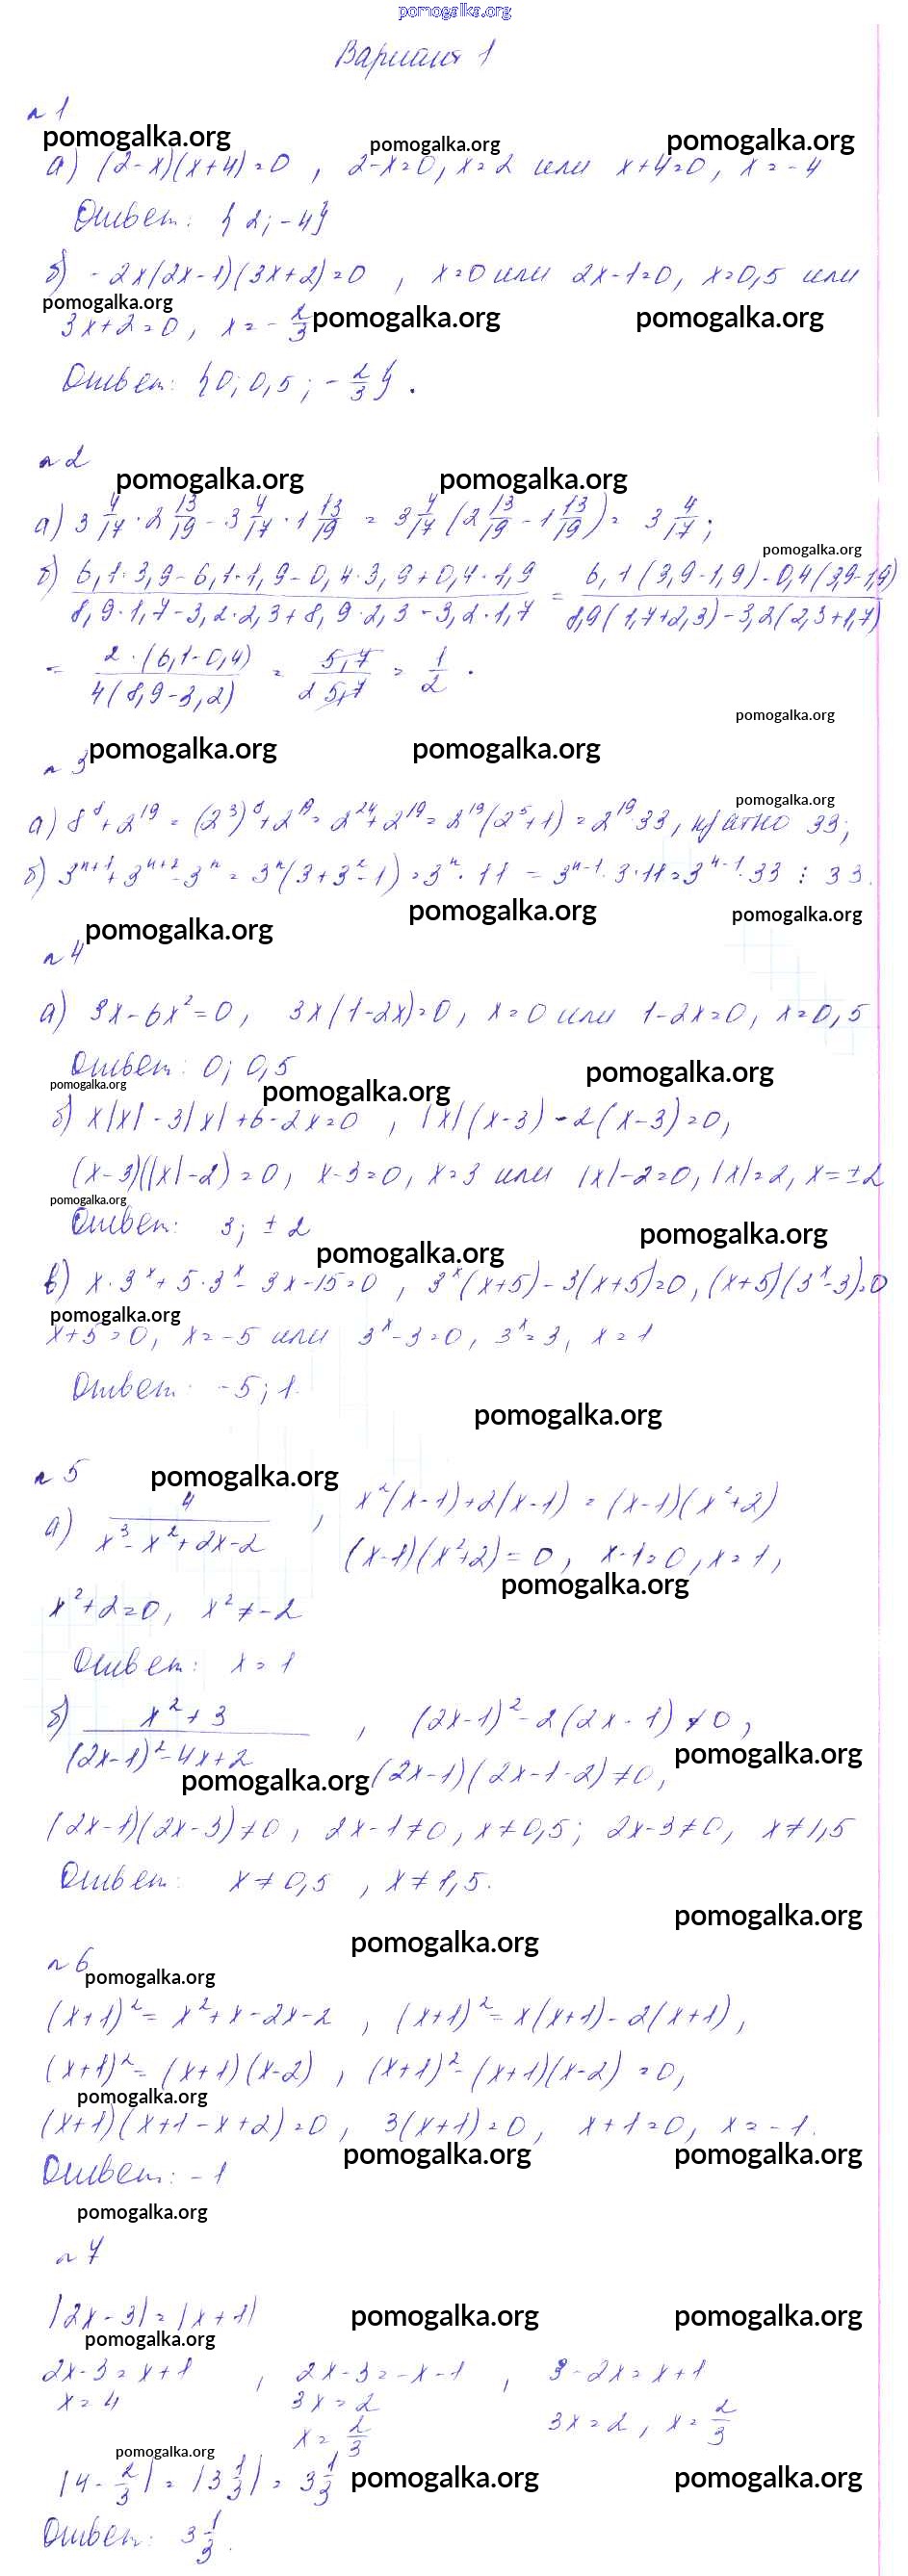 pomogalka.org
Вариант 1
n 1
pomogalka.org pomogalka.org pomogalka.org
а) (2-x)(x+4)=0, 2-x=0, x=2 или x+4=0, x=-4
Ответ: {2; -4}
б) -2x(2x-1)(3x+2)=0, x=0 или 2x-1=0, x=0,5 или
pomogalka.org pomogalka.org pomogalka.org
3x+2=0, x=-2/3
Ответ: {0; 0,5; -2/3}.
n 2
pomogalka.org pomogalka.org
а) 3 4/17 · 2 13/19 - 3 4/17 · 1 13/19 = 3 4/17 (2 13/19 - 1 13/19) = 3 4/17;
pomogalka.org
б) (6,1·3,9-6,1·1,9-0,4·3,9+0,4·1,9)/(8,9·1,7-3,2·2,3+8,9·2,3-3,2·1,7) = (6,1(3,9-1,9)-0,4(3,9-1,9))/(8,9(1,7+2,3)-3,2(2,3+1,7))
= 2·(6,1-0,4)/4(8,9-3,2) = 5,7/2 5,7 = 1/2.
pomogalka.org
n 3 pomogalka.org pomogalka.org
pomogalka.org
а) 8⁸+2¹⁹=(2³)⁸+2¹⁹=2²⁴+2¹⁹=2¹⁹(2⁵+1)=2¹⁹·33, кратно 33;
б) 3ⁿ⁺¹+3ⁿ⁺²-3ⁿ=3ⁿ(3+3²-1)=3ⁿ·11=3ⁿ⁻¹·3·11=3ⁿ⁻¹·33 ⋮ 33.
pomogalka.org pomogalka.org pomogalka.org
n 4
а) 3x-6x²=0, 3x(1-2x)=0, x=0 или 1-2x=0, x=0,5
Ответ: 0; 0,5
pomogalka.org pomogalka.org pomogalka.org
б) x|x|-3|x|+6-2x=0, |x|(x-3)-2(x-3)=0,
(x-3)(|x|-2)=0, x-3=0, x=3 или |x|-2=0, |x|=2, x=±2
pomogalka.org
Ответ: 3; ±2
pomogalka.org pomogalka.org
в) x·3ˣ+5·3ˣ-3x-15=0, 3ˣ(x+5)-3(x+5)=0, (x+5)(3ˣ-3)=0
pomogalka.org
x+5=0, x=-5 или 3ˣ-3=0, 3ˣ=3, x=1
Ответ: -5; 1.
pomogalka.org
n 5 pomogalka.org
а) 4/(x³-x²+2x-2), x²(x-1)+2(x-1)=(x-1)(x²+2)
(x-1)(x²+2)=0, x-1=0, x=1,
pomogalka.org
x²+2=0, x²≠-2
Ответ: x=1
б) (x²+3)/((2x-1)²-4x+2), (2x-1)²-2(2x-1)≠0,
pomogalka.org
pomogalka.org (2x-1)(2x-1-2)≠0,
(2x-1)(2x-3)≠0, 2x-1≠0, x≠0,5; 2x-3≠0, x≠1,5
Ответ: x≠0,5, x≠1,5.
pomogalka.org
pomogalka.org
n 6
pomogalka.org
(x+1)²=x²+x-2x-2, (x+1)²=x(x+1)-2(x+1),
(x+1)²=(x+1)(x-2), (x+1)²-(x+1)(x-2)=0,
pomogalka.org
(x+1)(x+1-x+2)=0, 3(x+1)=0, x+1=0, x=-1.
pomogalka.org pomogalka.org
Ответ: -1
pomogalka.org
n 7
|2x-3|=|x+1| pomogalka.org pomogalka.org
pomogalka.org
2x-3=x+1, 2x-3=-x-1, 3-2x=x+1
x=4 3x=2 3x=2, x=2/3
x=2/3
pomogalka.org
|4-2/3|=|3 1/3|=3 1/3 pomogalka.org pomogalka.org
Ответ: 3 1/3.